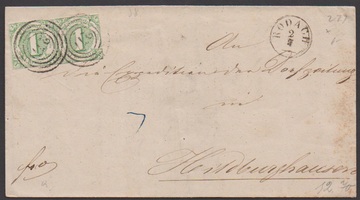 1 1
RODACH
2
An
die Expedition der Dorfzeitung
in
Hildburghausen
fro
7
12